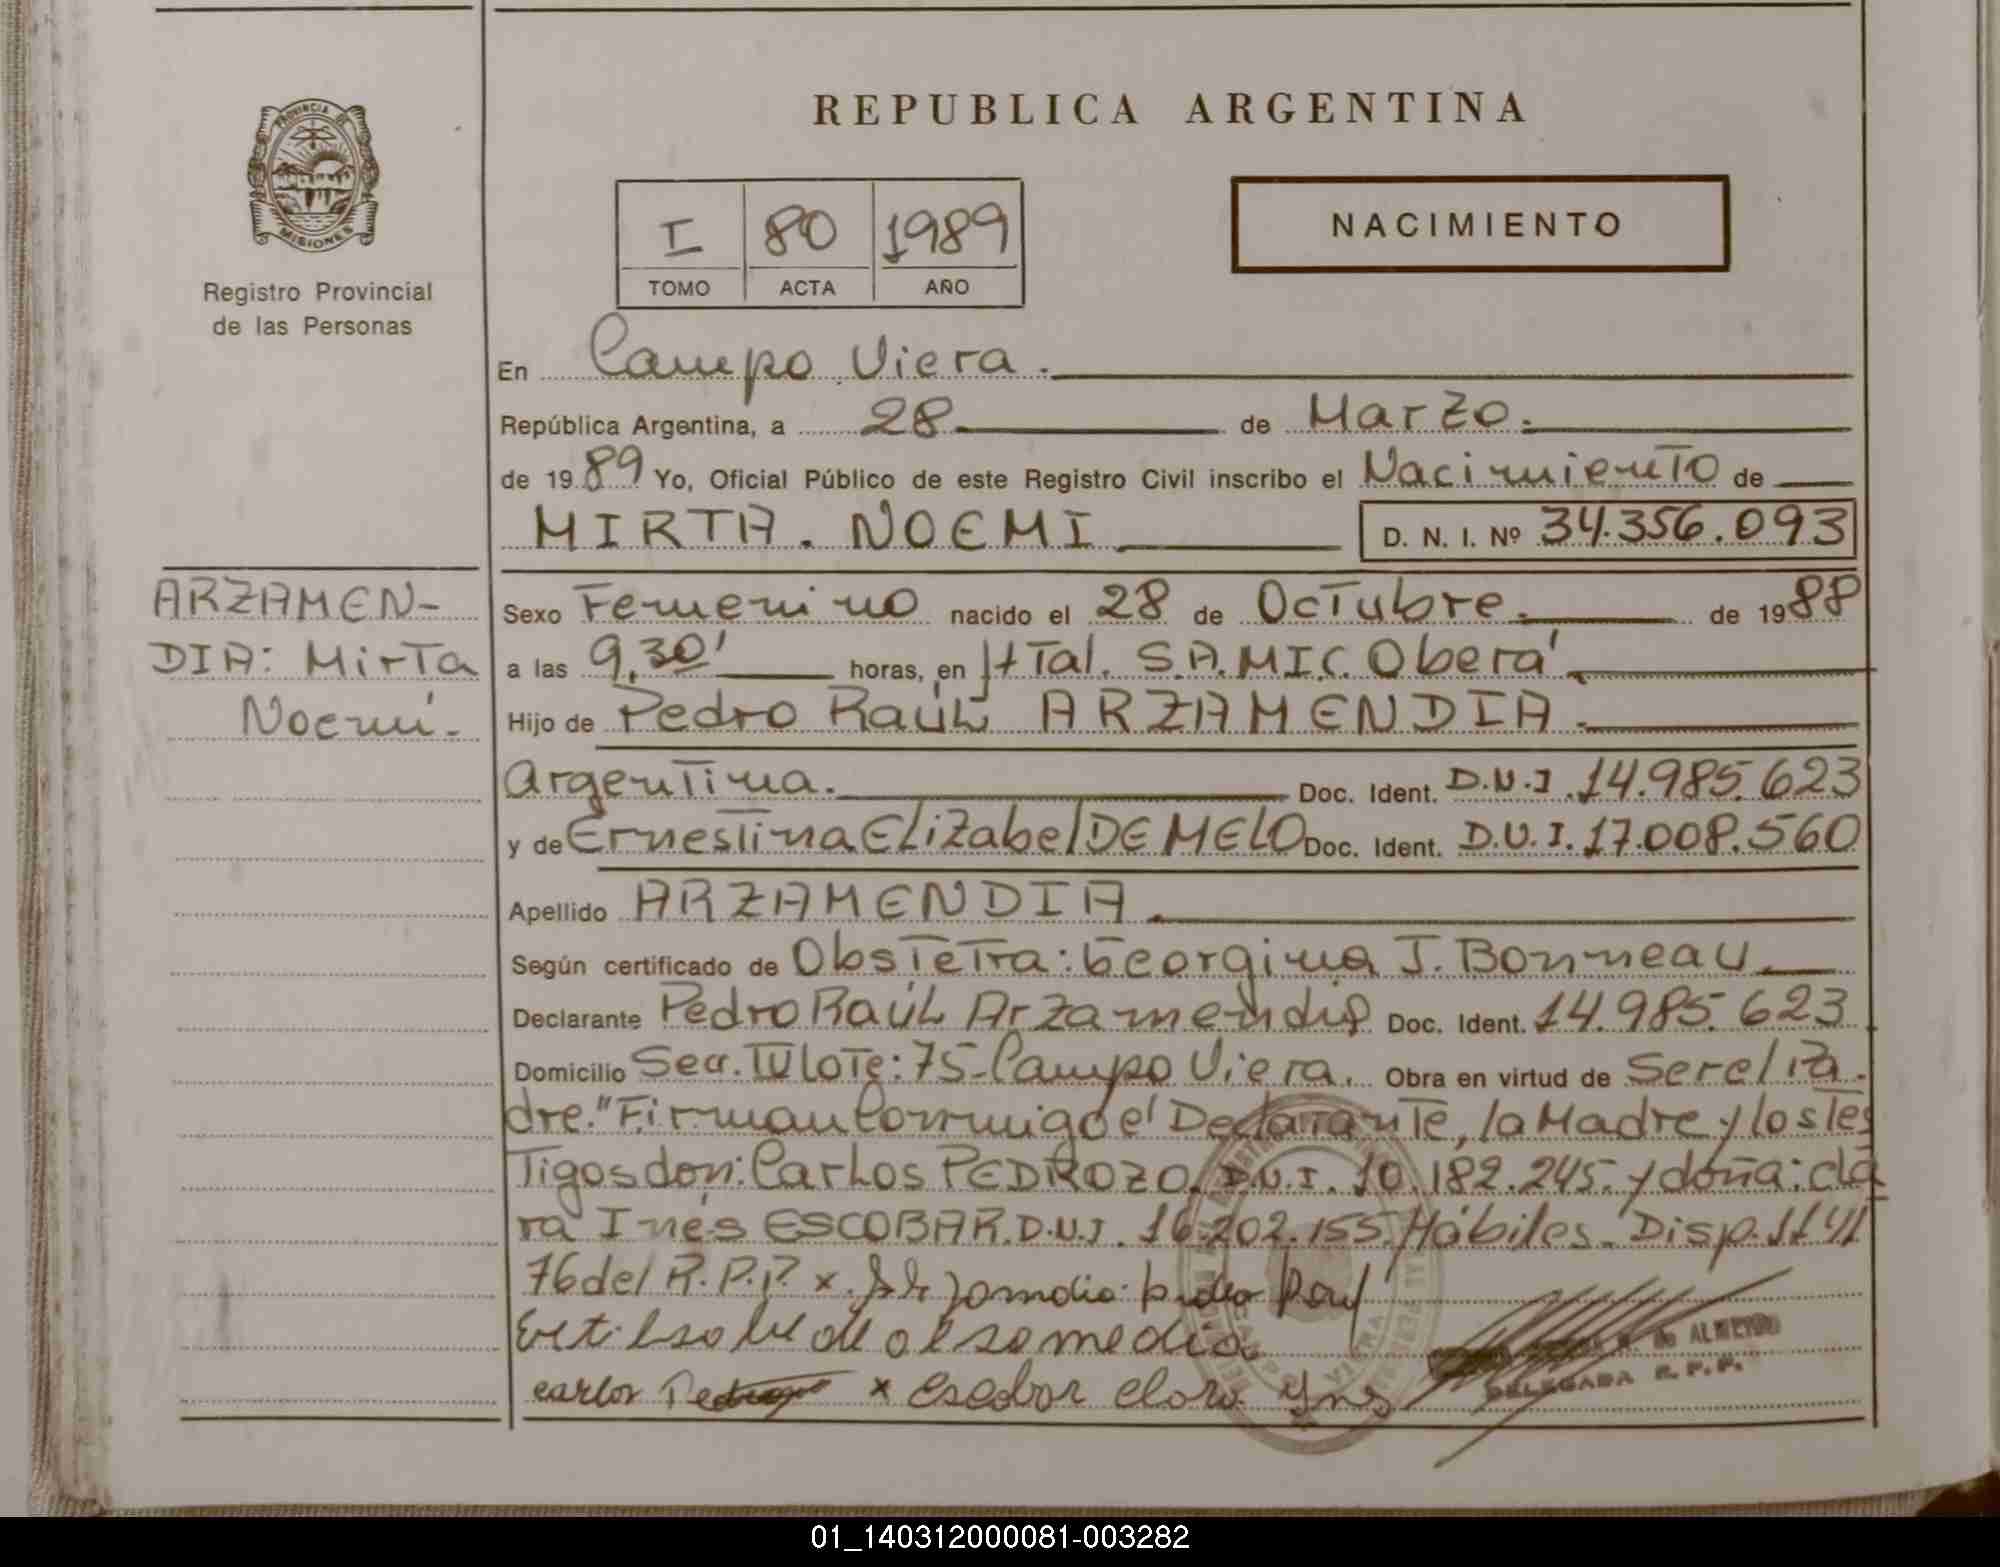 PROVINCIA DE
MISIONES
Registro Provincial
de las Personas
ARZAMEN-
DIA: Mirta
Noemí.-
REPUBLICA ARGENTINA
I 80 1989
TOMO ACTA AÑO
NACIMIENTO
En Campo Viera.
República Argentina, a 28 de Marzo.
de 1989 Yo, Oficial Público de este Registro Civil inscribo el Nacimiento de
MIRTA. NOEMI D. N. I. Nº 34.356.093
Sexo Femenino nacido el 28 de Octubre. de 1988
a las 9,30' horas, en Htal. S.A.M.I.C. Oberá
Hijo de Pedro Raúl ARZAMENDIA.
Argentina. Doc. Ident. D.N.I. 14.985.623
y de Ernestina Elizabel DE MELO Doc. Ident. D.N.I. 17.008.560
Apellido ARZAMENDIA.
Según certificado de Obstetra: Georgina J. Bonneau.
Declarante Pedro Raúl Arzamendia Doc. Ident. 14.985.623
Domicilio Secc. IV Lote: 75-Campo Viera. Obra en virtud de Ser el Pa-
dre." Firman Conmigo el Declarante, la Madre y los tes
tigos don: Carlos PEDROZO. D.N.I. 10.182.245. y doña: Cla
ra Inés ESCOBAR. D.N.I. 16.202.155. Hábiles. Disp. 1141
76 del R.P.P. x
carlos x escobar clara Yns
de ALMEIDA
DELEGADA R.P.P.
01_140312000081-003282